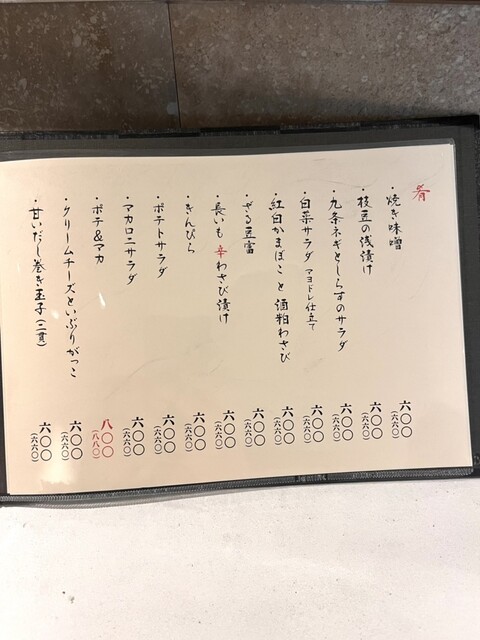 肴
・焼き味噌 六〇〇 (六六〇)
・枝豆の浅漬け 六〇〇 (六六〇)
・九条ネギとしらすのサラダ 六〇〇 (六六〇)
・白菜サラダ マヨドレ仕立て 六〇〇 (六六〇)
・紅白かまぼこと酒粕わさび 六〇〇 (六六〇)
・ざる豆富 六〇〇 (六六〇)
・長いも辛わさび漬け 六〇〇 (六六〇)
・きんぴら 六〇〇 (六六〇)
・ポテトサラダ 六〇〇 (六六〇)
・マカロニサラダ 六〇〇 (六六〇)
・ポテ&マカ 八〇〇 (八八〇)
・クリームチーズといぶりがっこ 六〇〇 (六六〇)
・甘いだし巻き玉子(二貫) 六〇〇 (六六〇)